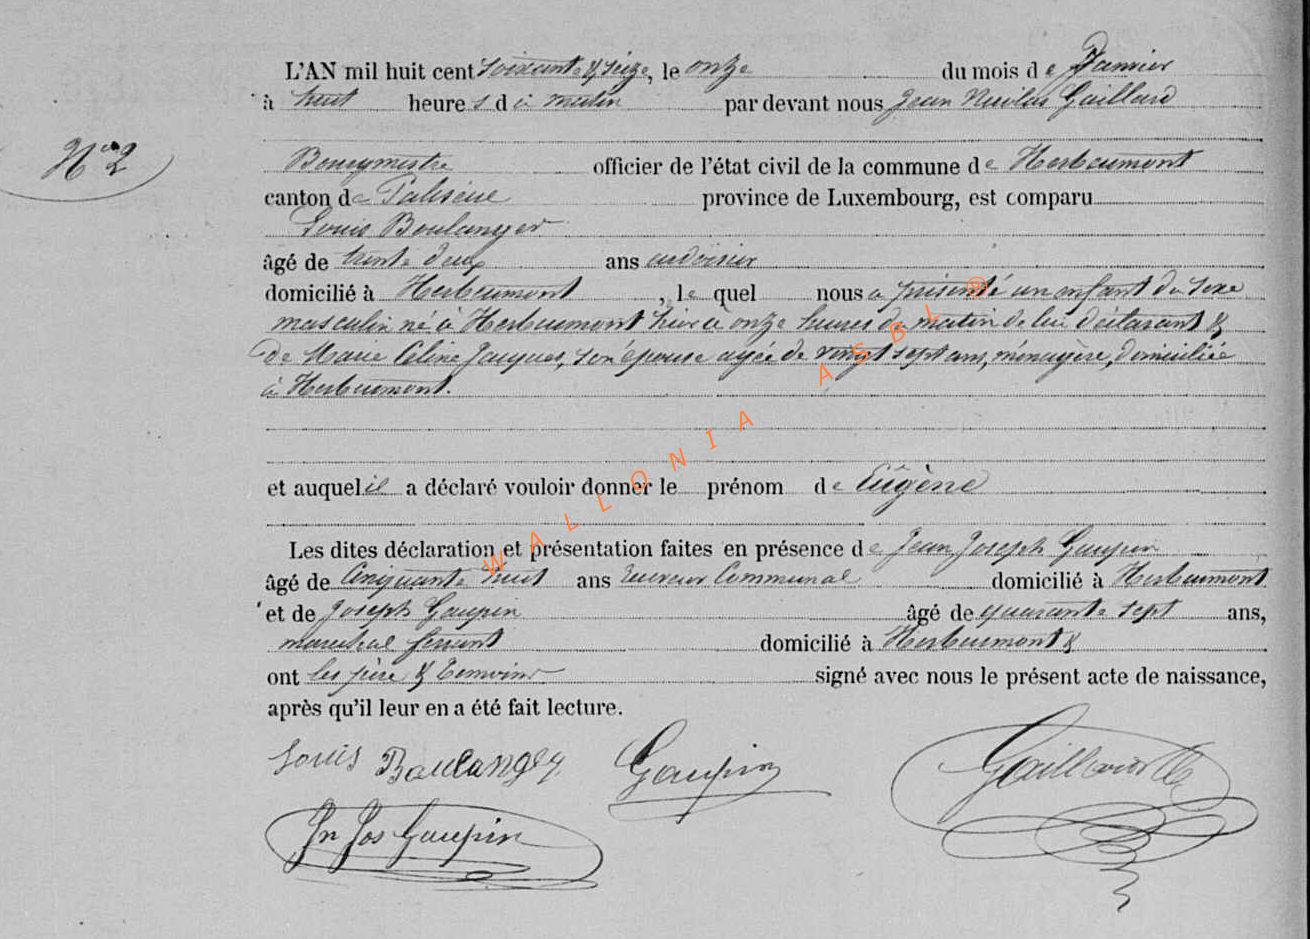 L'AN mil huit cent soixante & seize, le onze du mois de Janvier
à huit heures du matin par devant nous Jean Nicolas Gaillard
N° 2
Bourgmestre officier de l'état civil de la commune de Herbeumont
canton de Paliseul province de Luxembourg, est comparu
Louis Boulanger
âgé de trente deux ans ardoisier
domicilié à Herbeumont, lequel nous a présenté un enfant du sexe
masculin né à Herbeumont hier à onze heures du matin de lui déclarant &
de Marie Céline Jacques, son épouse agée de vingt sept ans, ménagère, domiciliée
à Herbeumont.
et auquel il a déclaré vouloir donner le prénom de Eugène
Les dites déclaration et présentation faites en présence de Jean Joseph Gaupin
âgé de Cinquante huit ans receveur Communal domicilié à Herbeumont
et de Joseph Gaupin âgé de quarante sept ans,
marechal ferrant domicilié à Herbeumont &
ont les père & temoins signé avec nous le présent acte de naissance,
après qu'il leur en a été fait lecture.
Louis Boulanger Gaupin Gaillard
Jn Jos Gaupin
WALLONIA ASBL ®